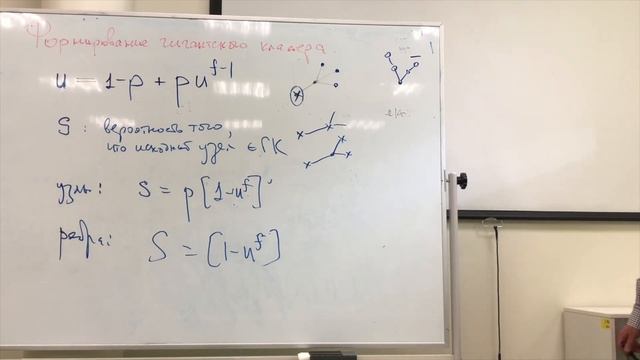 Формирование гигантского кластера
u = 1-p + pu^{f-1}
S : вероятность того,
что исходный узел ∈ ГК
узлы: S = p[1-u^f]
ребра: S = [1-u^f]